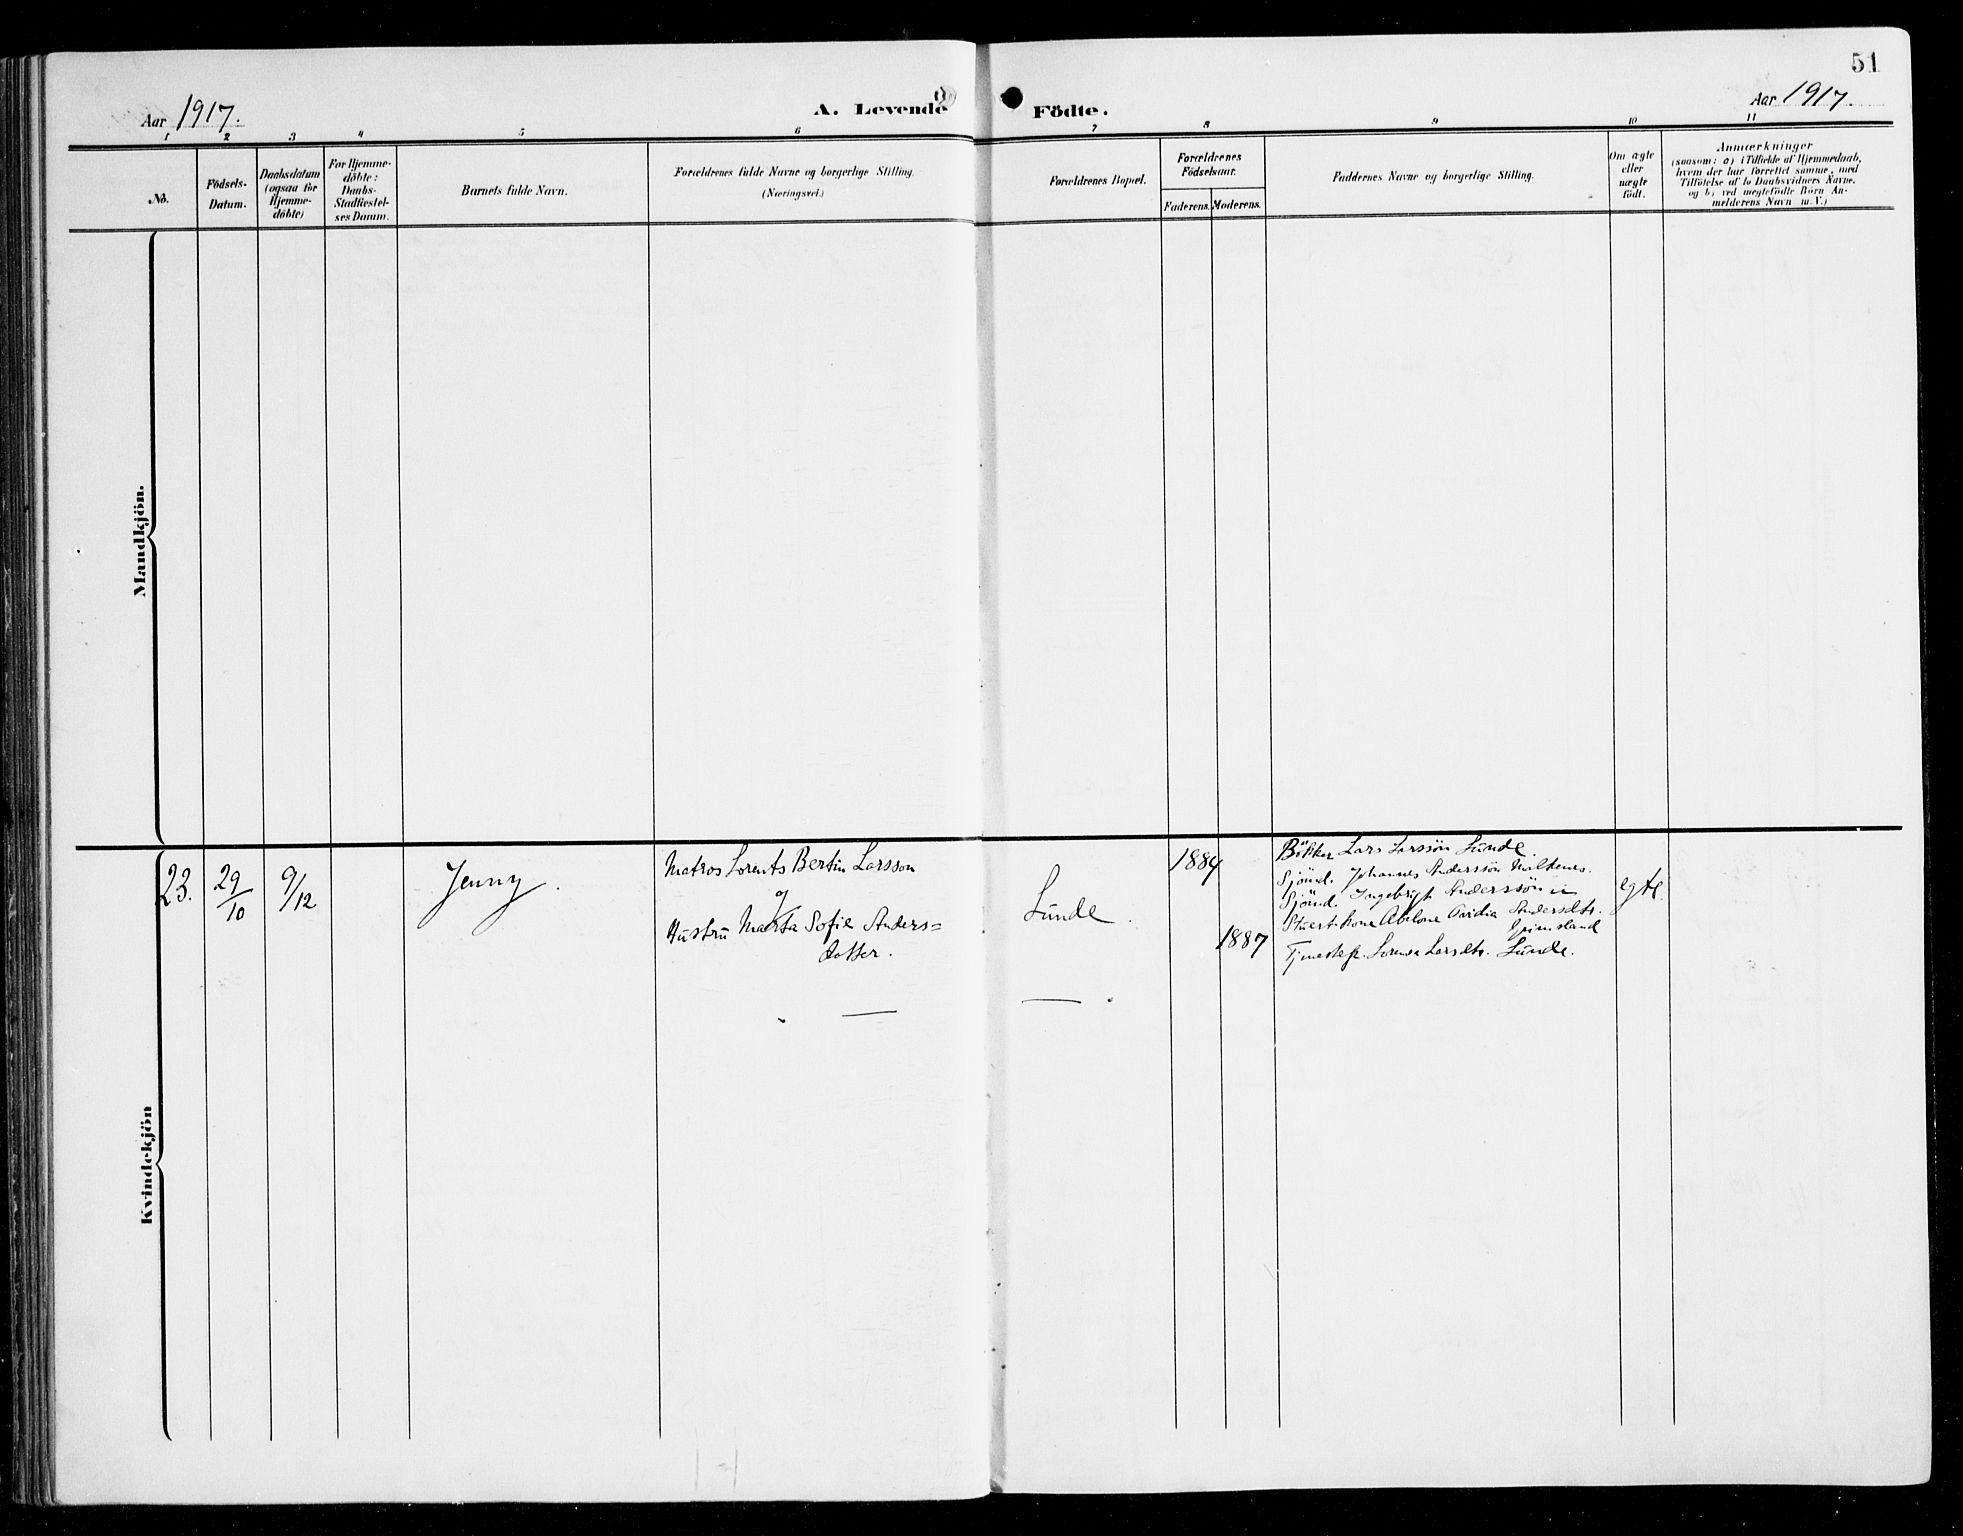 51
Aar 1917.
A. Levende Födte.
Aar 1917.
1 2 3 4 5 6 7 8 9 10 11
No.
Födsels-
Datum.
Daabsdatum
(ogsaa for
Hjemme-
döbte)
For Hjemme-
döbte:
Daabs-
Stadfæstel-
ses Datum.
Barnets fulde Navn.
Forældrenes fulde Navne og borgerlige Stilling.
(Næringsvei.)
Forældrenes Bopæl.
Forældrenes
Födselsaar.
Faderens. Moderens.
Faddernes Navne og borgerlige Stilling.
Om ægte
eller
uægte
födt.
Anmærkninger
(saasom: a) i Tilfælde af Hjemmedaab,
hvem der har forrettet samme, med
Tilföielse af to Daabsvidners Navne.
og b) ved uægtefödte Börn An-
melderens Navn m. V.)
Mandkjön.
Kvindekjön
23.
29/10
9/12
Jenny.
Matros Lorents Bertin Larsson
og
Hustru Marta Sofie Anders=
dotter.
Lunde.
1884
1887
Bökker Lars Larssön Lunde.
Sjömd. Johannes Anderssön
Sjömd. Ingebrigt Anderssön
Kone Abelone Andersdtr.
Grimsland
Larsdtr. Lunde.
egte